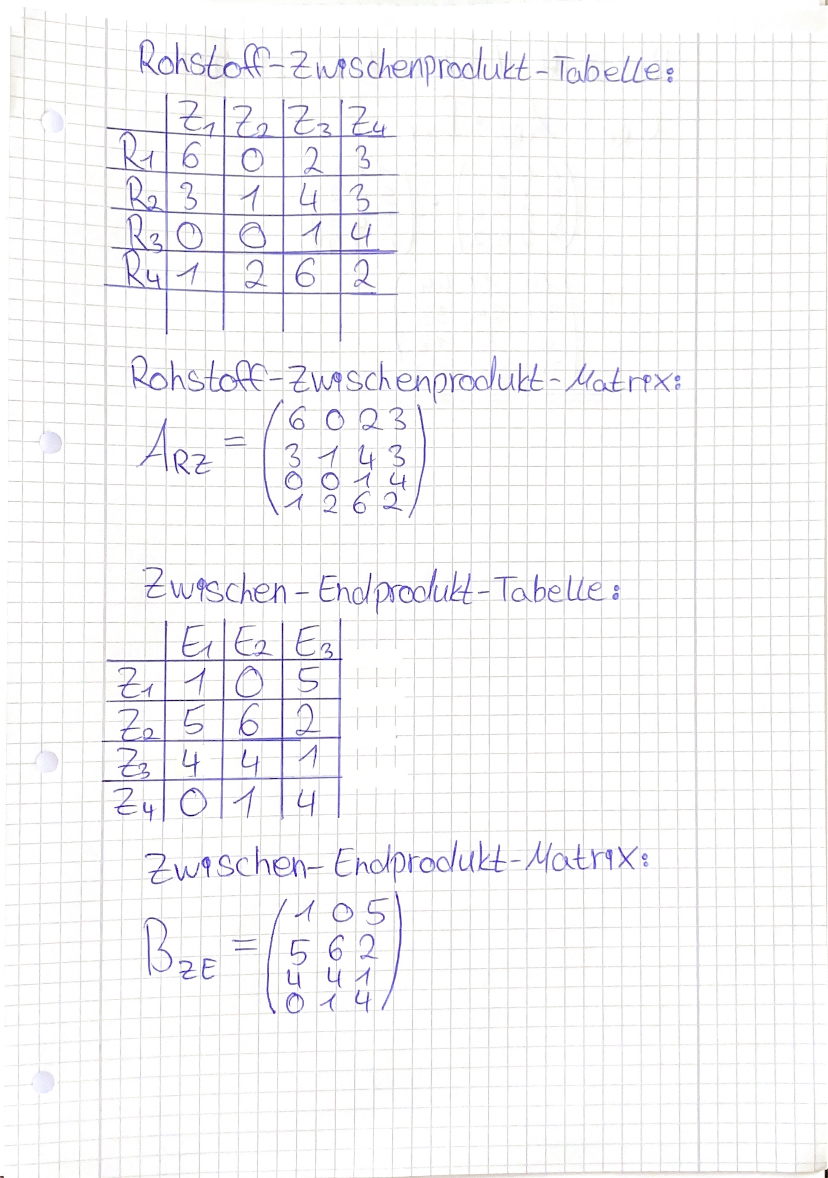 Rohstoff-Zwischenprodukt-Tabelle:
Z1 Z2 Z3 Z4
R1 6 0 2 3
R2 3 1 4 3
R3 0 0 1 4
R4 1 2 6 2
Rohstoff-Zwischenprodukt-Matrix:
6 0 2 3
ARZ = 3 1 4 3
0 0 1 4
1 2 6 2
Zwischen-Endprodukt-Tabelle:
E1 E2 E3
Z1 1 0 5
Z2 5 6 2
Z3 4 4 1
Z4 0 1 4
Zwischen-Endprodukt-Matrix:
1 0 5
BZE = 5 6 2
4 4 1
0 1 4